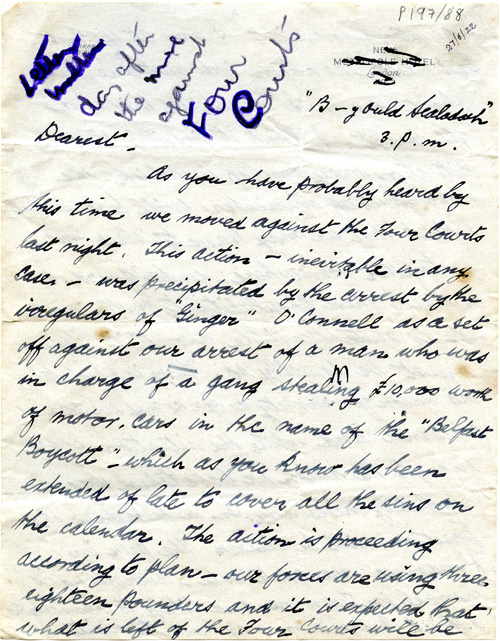 P197/88
27/6/22
Letter written
day after
the move
against
Four
Courts
NEW
HOTEL
"B-gould Sealadach"
3. p.m.
Dearest -
As you have probably heard by
this time we moved against the Four Courts
last night. This action - inevitable in any
case, - was precipitated by the arrest by the
irregulars of "Ginger" O'Connell as a set
off against our arrest of a man who was
in charge of a gang stealing £10,000 worth
of motor. cars in the name of the "Belfast
Boycott" - which as you know has been
extended of late to cover all the sins on
the calendar. The action is proceeding
according to plan - our forces are using three
eighteen pounders and it is expected that
what is left of the Four Courts will be